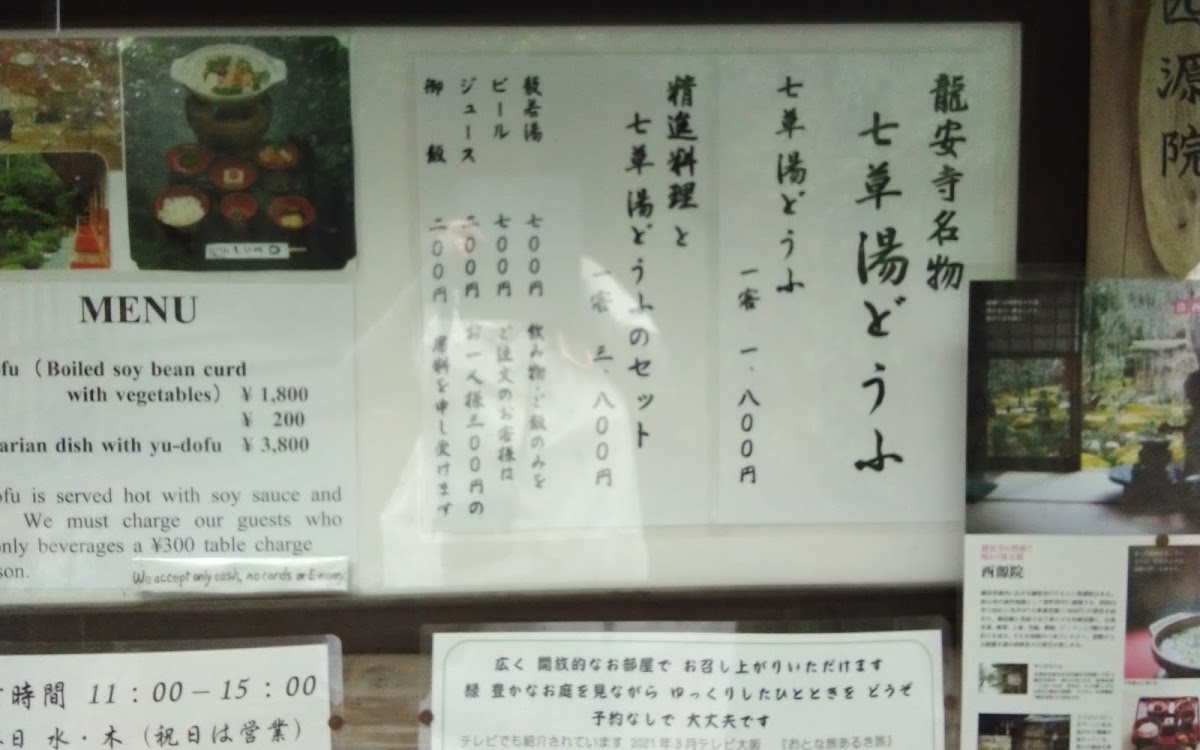 西源院
龍安寺名物
七草湯どうふ
七草湯どうふ
一客 一、八〇〇円
精進料理と
七草湯どうふのセット
一客 三、八〇〇円
般若湯 七〇〇円
ビール 七〇〇円
ジュース 二〇〇円
御飯 二〇〇円
飲み物・ご飯のみを
ご注文のお客様は
お一人様三〇〇円の
席料を申し受けます
MENU
fu (Boiled soy bean curd
with vegetables) ¥ 1,800
¥ 200
arian dish with yu-dofu ¥ 3,800
ofu is served hot with soy sauce and
We must charge our guests who
only beverages a ¥300 table charge
son.
We accept only cash, no cards or E-money.
時間 11：00－15：00
日 水・木（祝日は営業）
広く 開放的なお部屋で お召し上がりいただけます
緑 豊かなお庭を見ながら ゆっくりしたひとときを どうぞ
予約なしで 大丈夫です
テレビでも紹介されています 2021年3月テレビ大阪 『おとな旅あるき旅』
西源院